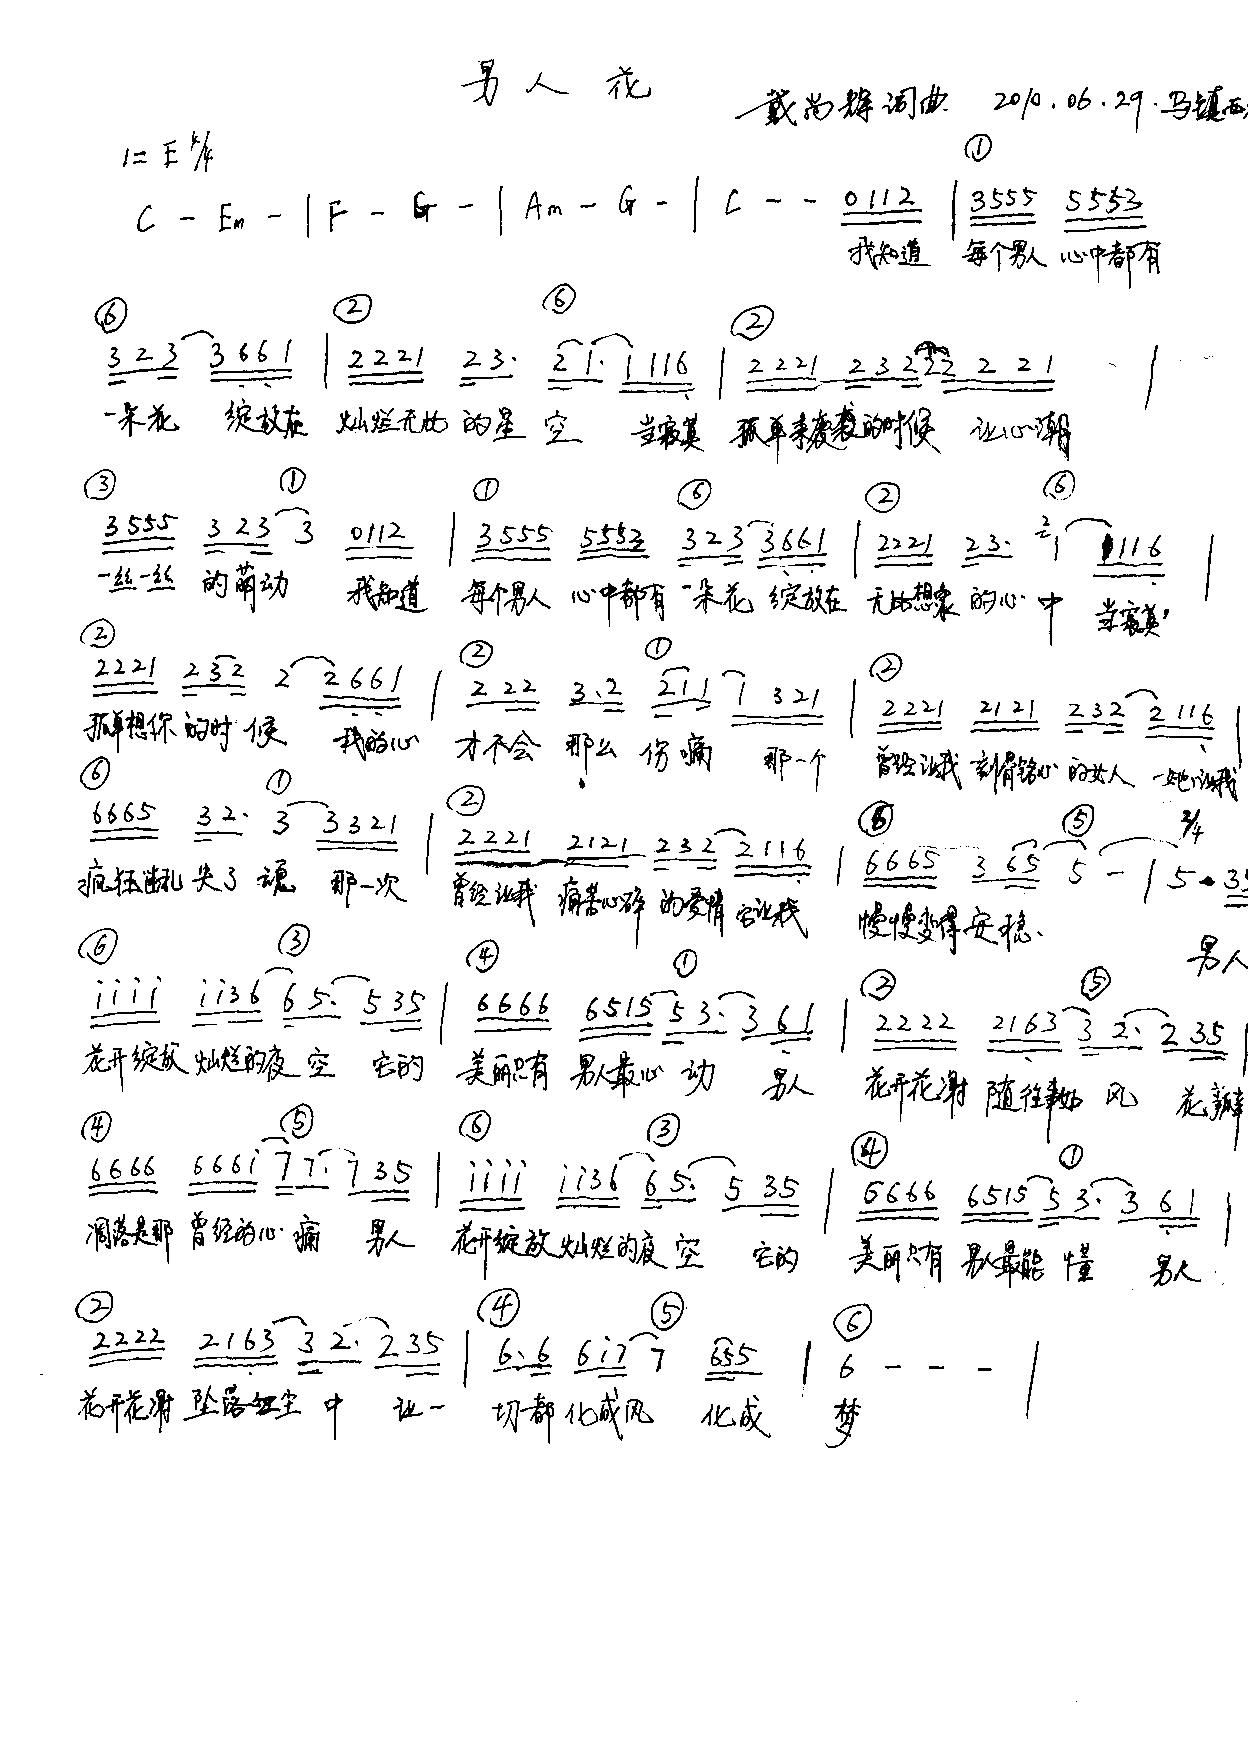 男人花
戴尚辉词曲 2010.06.29.马镇西
1=E 4/4
①
C - Em - | F - G - | Am - G - | C - - 0112 | 3555 5553
我知道 每个男人 心中都有
⑥ ② ⑥ ②
323 3661 | 2221 23· 21· 1116 | 2221 232 2 2 21 |
一朵花 绽放在 灿烂无比 的星空 当寂寞 孤单来侵袭的时候 让心潮
③ ① ① ⑥ ② ⑥
3555 323 3 0112 | 3555 5553 323 3661 | 2221 23· 21 1116 |
一丝一丝 的萌动 我知道 每个男人 心中都有 一朵花 绽放在 无比想象 的心中 当寂寞
② ② ① ②
2221 232 2 2661 | 222 3·2 211 1 321 | 2221 2121 232 2116 |
孤单想你 的时候 我的心 才不会 那么 伤痛 那一个 曾经让我 刻骨铭心 的女人 她让我
⑥ ① ② ⑥ ⑤ 2/4
6665 32· 3 3321 | 2221 2121 232 2116 | 6665 3 65 5 - | 5·35
疯狂凌乱 失了魂 那一次 曾经让我 痛苦心碎 的爱情 它让我 慢慢变得安稳、 男人
⑥ ③ ④ ① ② ⑤
iiii ii36 65· 535 | 6666 6515 53· 361 | 2222 2163 32· 235 |
花开绽放 灿烂的夜空 它的 美丽只有 男人最心动 男人 花开花谢 随往事如风 花瓣
④ ⑤ ⑥ ③ ④ ①
6666 666i 77· 735 | iiii ii36 65· 535 | 6666 6515 53· 361 |
凋落是那 曾经的心痛 男人 花开绽放 灿烂的夜空 它的 美丽只有 男人最能懂 男人
② ④ ⑤ ⑥
2222 2163 32· 235 | 6·6 6i7 7 655 | 6 - - - |
花开花谢 坠落红尘中 让一 切都 化成风 化成 梦